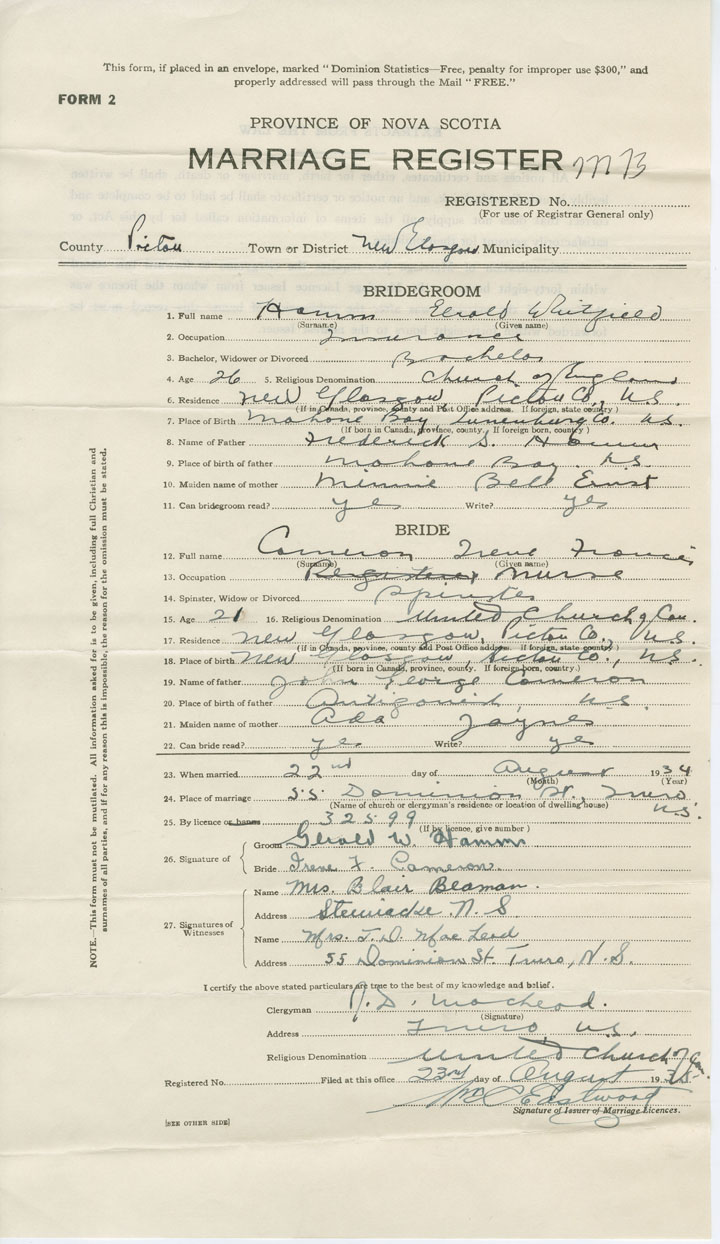 This form, if placed in an envelope, marked "Dominion Statistics—Free, penalty for improper use $300," and
properly addressed will pass through the Mail "FREE."
FORM 2
PROVINCE OF NOVA SCOTIA
MARRIAGE REGISTER
REGISTERED No.
(For use of Registrar General only)
County Pictou Town or District New Glasgow Municipality
BRIDEGROOM
1. Full name Hamm Gerald Whitfield
(Surname) (Given name)
2. Occupation Insurance
3. Bachelor, Widower or Divorced Bachelor
4. Age 26 5. Religious Denomination Church of England
6. Residence New Glasgow, Pictou Co., N.S.
(If in Canada, province, county and Post Office address. If foreign, state country)
7. Place of Birth Mahone Bay Lunenburg Co. N.S.
(If born in Canada, province, county, If foreign born, country)
8. Name of Father Frederick S. Hamm
9. Place of birth of father Mahone Bay N.S.
10. Maiden name of mother Minnie Bell Ernst
11. Can bridegroom read? yes Write? yes
BRIDE
12. Full name Cameron Irene Francis
(Surname) (Given name)
13. Occupation Registered Nurse
14. Spinster, Widow or Divorced Spinster
15. Age 21 16. Religious Denomination United Church of Can.
17. Residence New Glasgow, Pictou Co., N.S.
(If in Canada, province, county and Post Office address. If foreign, state country)
18. Place of birth New Glasgow, Pictou Co., N.S.
(If born in Canada, province, county. If foreign born, country.)
19. Name of father John George Cameron
20. Place of birth of father Antigonish, N.S.
21. Maiden name of mother Ada Jaynes
22. Can bride read? yes Write? yes
23. When married 22nd day of August 1934
(Month) (Year)
24. Place of marriage 55 Dominion St., Truro N.S.
(Name of church or clergyman's residence or location of dwelling house)
25. By licence or banns 32599
(If by licence, give number)
26. Signature of
Groom Gerald W. Hamm
Bride Irene F. Cameron.
27. Signatures of Witnesses
Name Mrs. Blair Beaman.
Address Stewiacke N.S
Name Mrs. J. D. MacLeod
Address 55 Dominion St. Truro, N.S.
I certify the above stated particulars are true to the best of my knowledge and belief.
Clergyman J. D. MacLeod.
(Signature)
Address Truro N.S.
Religious Denomination United Church of Can.
Registered No. Filed at this office 23rd day of August 19
Signature of Issuer of Marriage Licences.
[SEE OTHER SIDE]
NOTE.—This form must not be mutilated. All information asked for is to be given, including full Christian and
surnames of all parties, and if for any reason this is impossible, the reason for the omission must be stated.